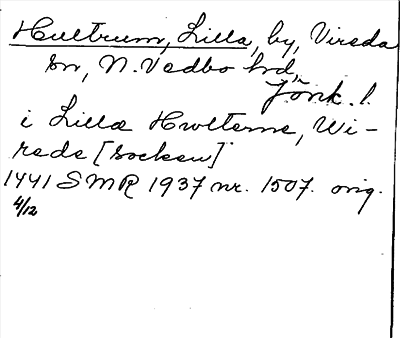 Hultrum, Lilla, by, Vireda
sn, N. Vedbo hd,
Jönk. l.
i Lillæ Hwlterne, Wi-
reda [socken]
1441 SMR 1937 nr. 1507. orig.
4/12